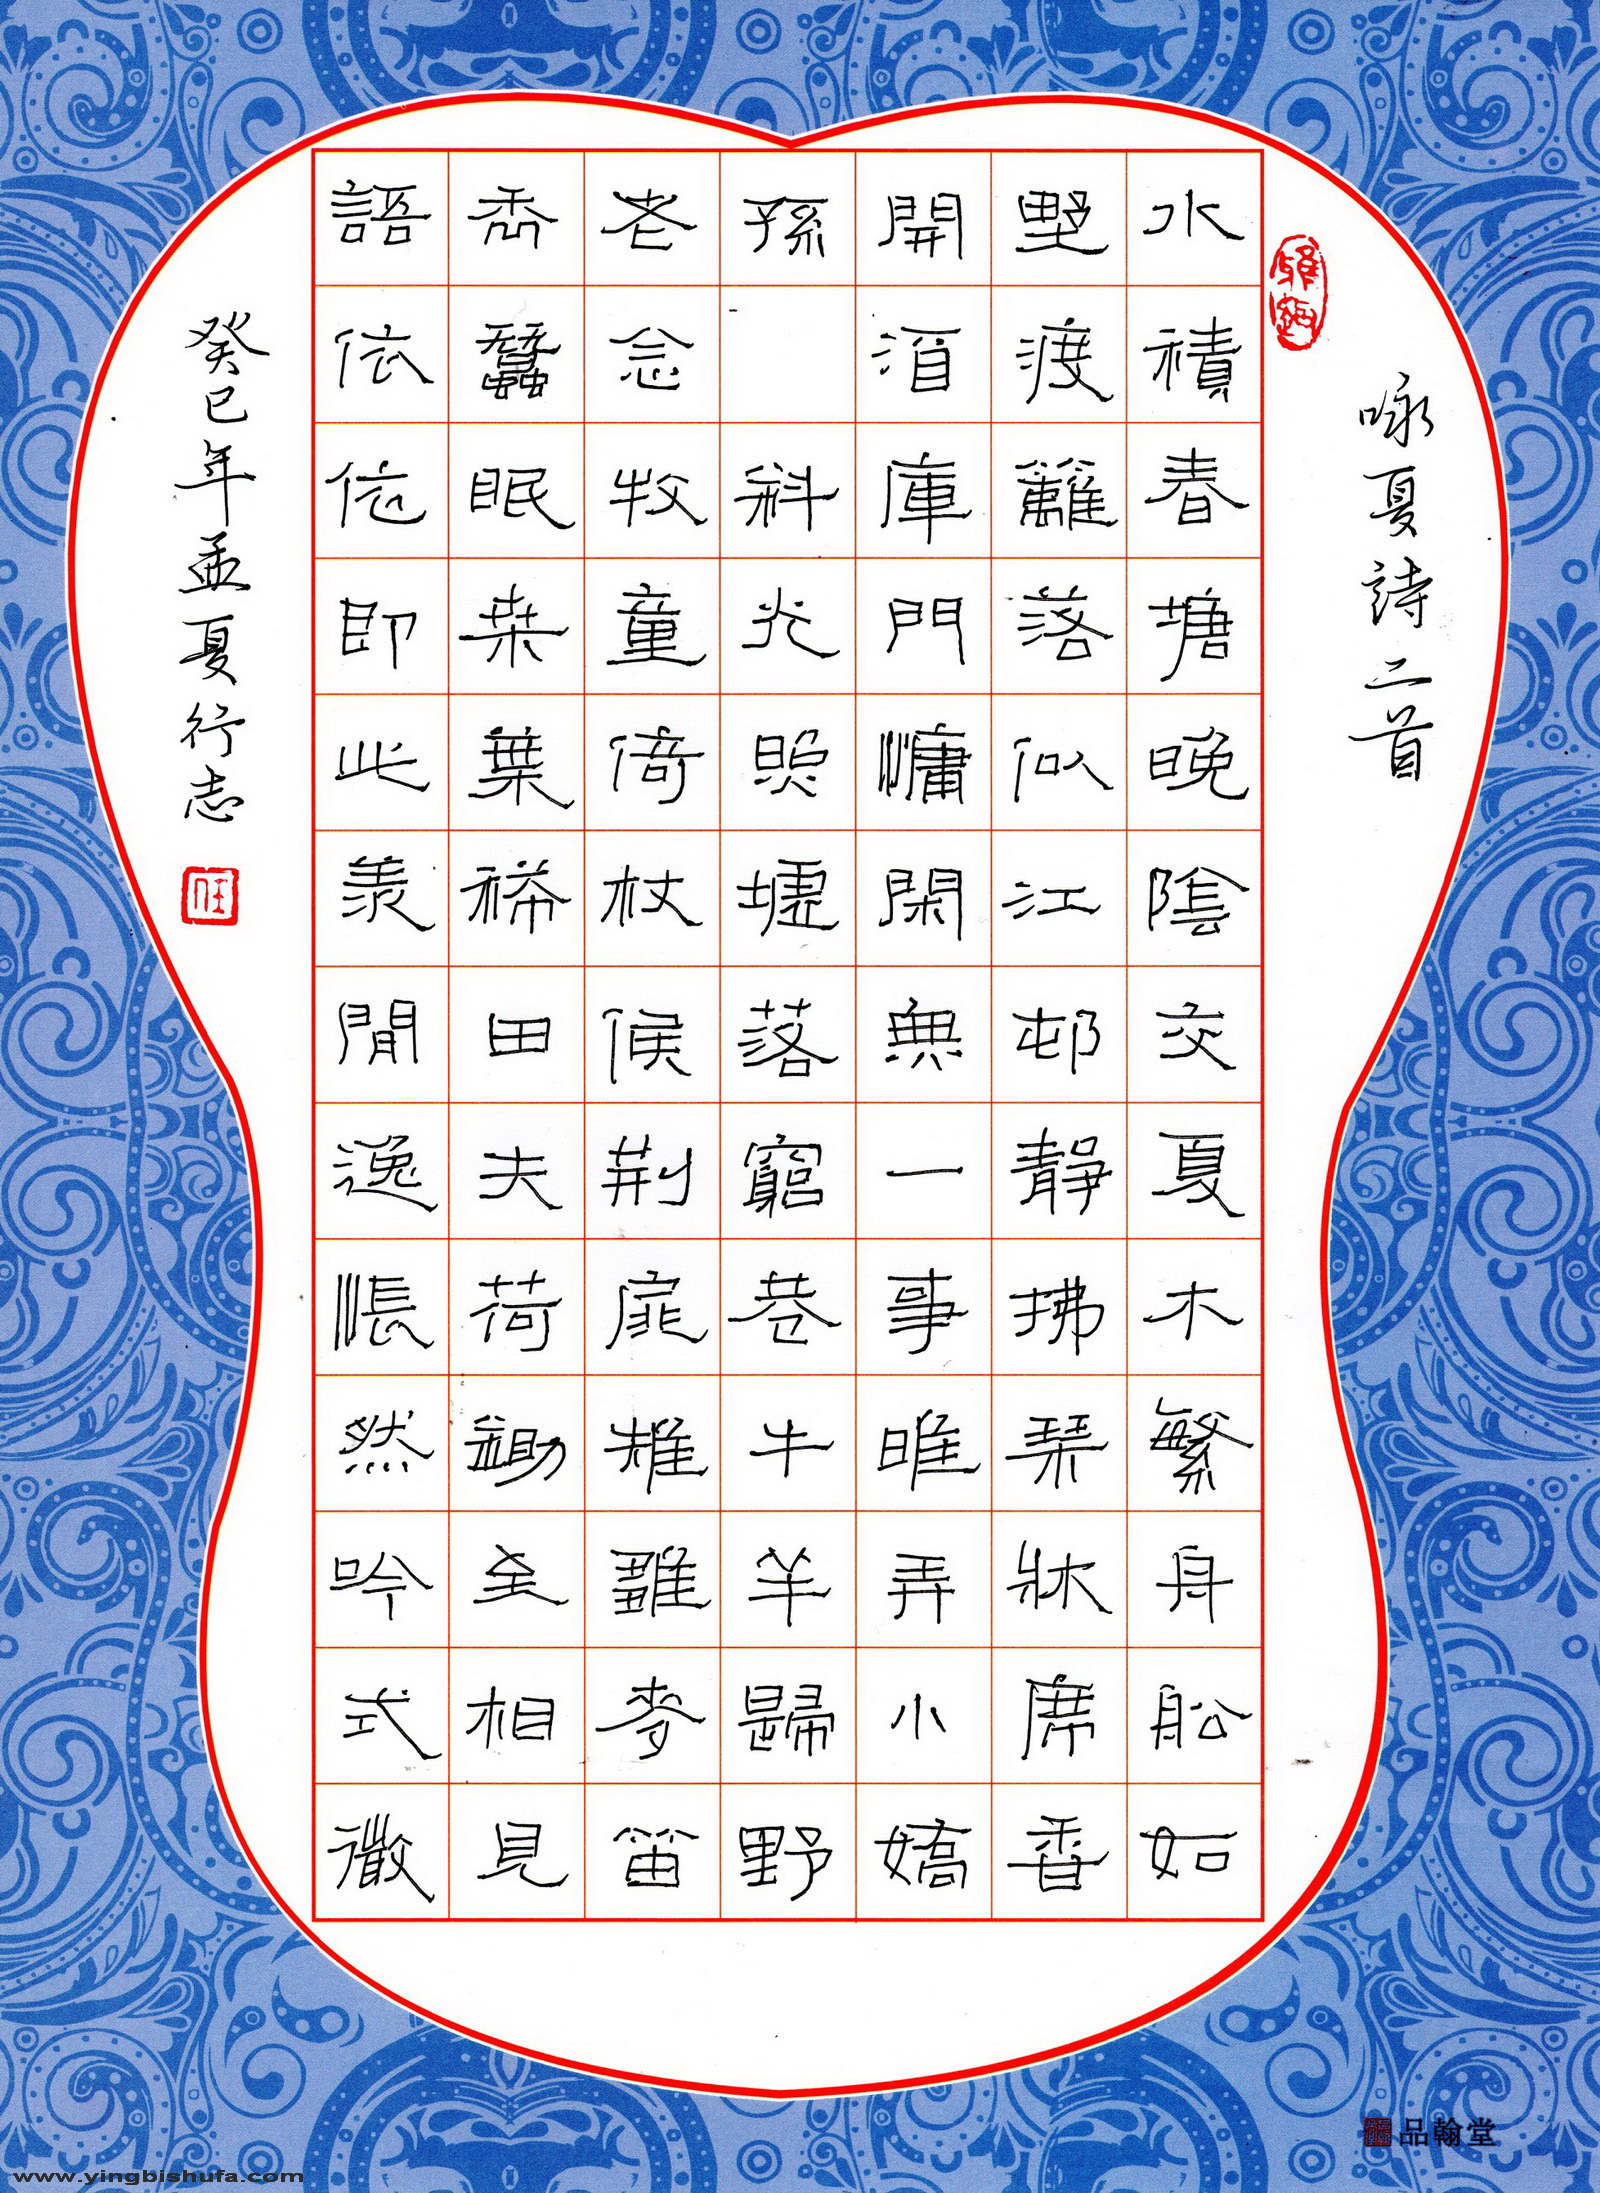 咏夏詩二首
水積春塘晚陰交夏木繁舟舩如
墅渡籬落似江邨靜拂琴牀席香
開酒庫門慵閑無一事唯弄小嬌
孫 斜光照墟落窮巷牛羊歸野
老念牧童倚杖候荆扉雉雊麥苗
秀蠶眠桑葉稀田夫荷鋤至相見
語依依即此羨閒逸悵然吟式微
癸巳年孟夏行志
品翰堂
www.yingbishufa.com